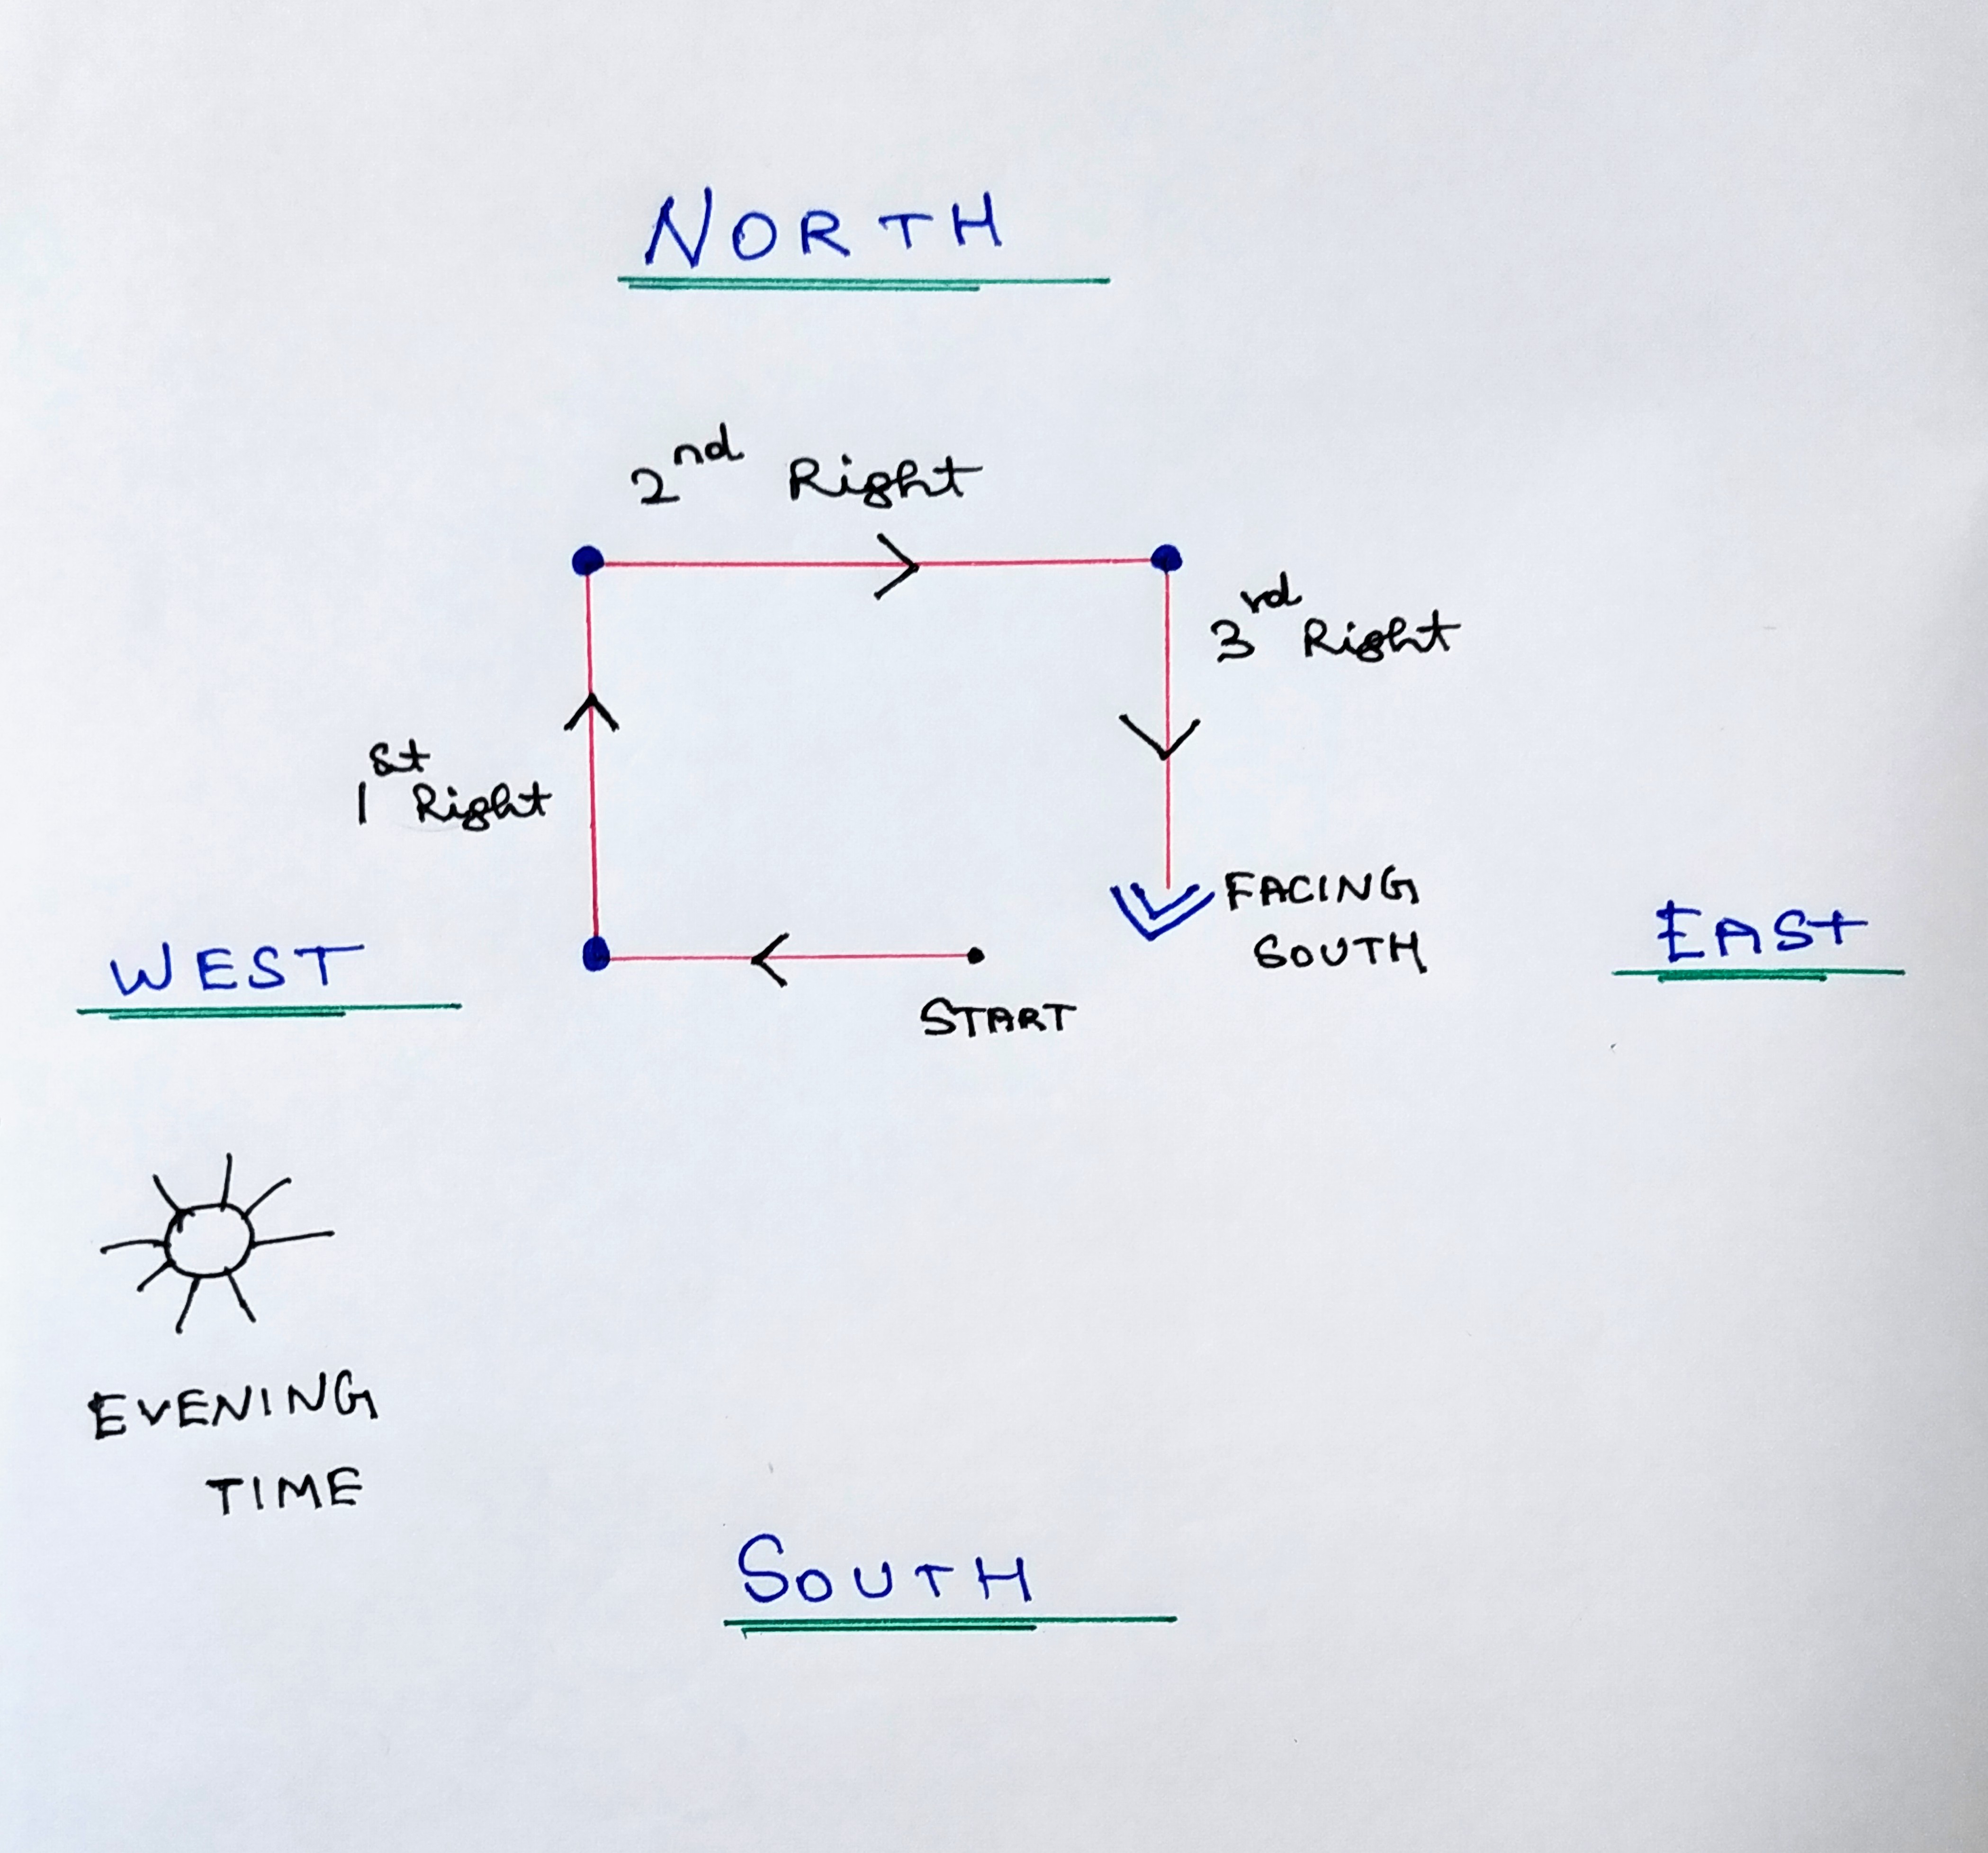 NORTH
2nd Right
3rd Right
1st Right
FACING
SOUTH
WEST
EAST
START
EVENING
TIME
SOUTH